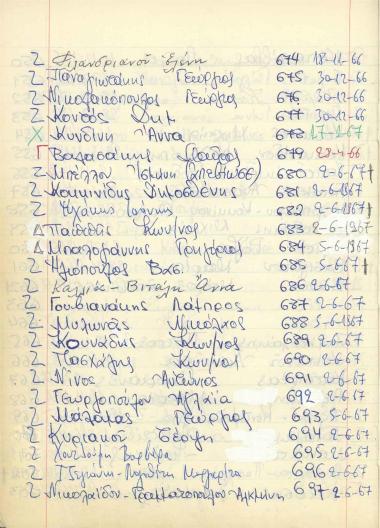 Ζ Φιλανδριανού Ελένη 674 18-11-66
Ζ Παναγιωτάκης Γεώργιος 675 30-12-66
Ζ Νικολακόπουλος Γεώργιος 676 30-12-66
Ζ Κονδός Δημ 677 30-12-66
Χ Κυνδίνη Άννα 678 17-1-67
Γ Βαλασάκης Σταύρος 679 28-4-66
Ζ Μπέλλου Ισμήνη 680 2-6-67 †
Ζ Κομνινίδης Δημοσθένης 681 2-6-67
Ζ Ιωάννης 682 2-6-1967 †
Δ Παππάς Κων/νος 683 2-6-1967
Δ Μπαλογιάννης Γρηγόριος 684 5-6-1967
Ζ Ηλιόπουλος Βασ. 685 5-6-67 †
Ζ Βιτάλη Άννα 686 2-6-67
Ζ Γουβιανάκης Λάμπρος 687 2-6-67
Ζ Μυλωνάς Νικόλαος 688 5-6-1967
Ζ Κουνάδης Κων/νος 689 2-6-67
Ζ Πασχάλης Κων/νος 690 2-6-67
Ζ Νίνος Αντώνιος 691 2-6-67
Ζ Γεωργοπούλου Αγλαΐα 692 2-6-67
Ζ Μαλάμας Γεώργιος 693 5-6-67
Ζ Κυριακού 694 2-6-67
Ζ Βαρβάρα 695 2-6-67
Ζ Μαργαρίτα 696 2-6-67
Ζ Νικολαΐδου-Γραμματοπούλου Αλκμήνη 697 2-6-67